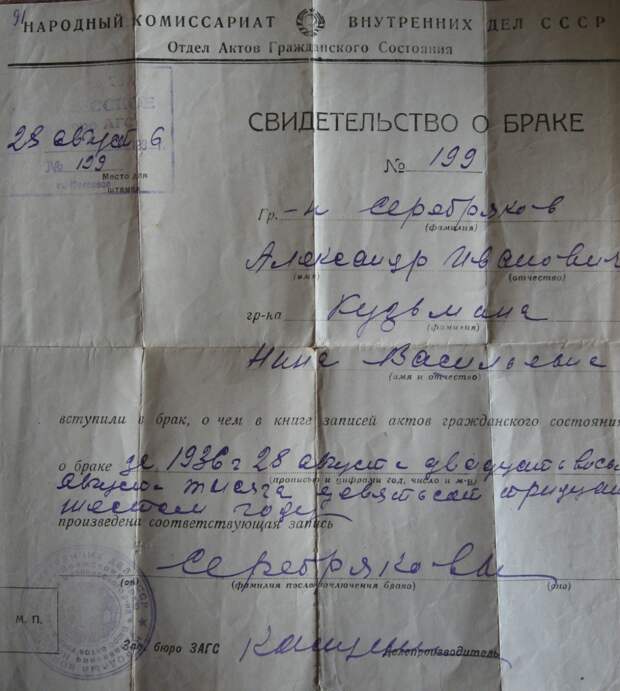 91
НАРОДНЫЙ КОМИССАРИАТ ВНУТРЕННИХ ДЕЛ СССР
Отдел Актов Гражданского Состояния
28 август 6
№ 199
Место для
штампа
СВИДЕТЕЛЬСТВО О БРАКЕ
№ 199
Гр. -н Серебряков
(фамилия)
Александр Иванович
(имя) (отчество)
гр-ка Кудьмина
(фамилия)
Нина Васильевна
(имя и отчество)
вступили в брак, о чем в книге записей актов гражданского состояния
о браке за 1936 г 28 августа двадцать вось
(прописью и цифрами год, число и м-ц)
августа тысяча девятьсот тридцать
шестом году
произведена соответствующая запись
Серебряковы
(он) (фамилия после заключения брака) (она)
М. П.
Зав. бюро ЗАГС Делопроизводитель